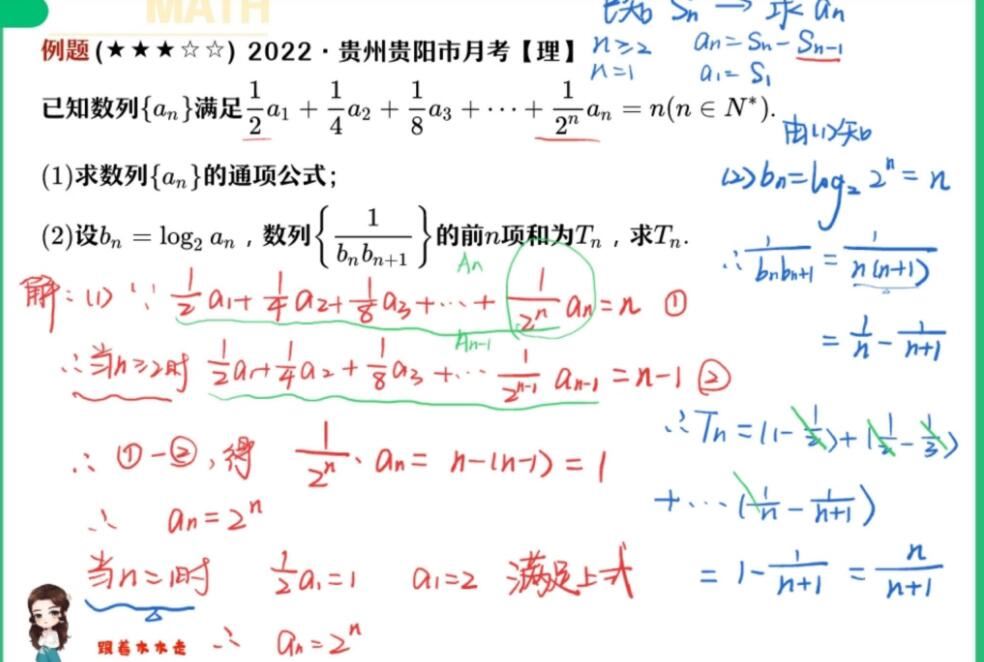 MATH
已知 Sₙ → 求 aₙ
例题 (★★★☆☆) 2022 · 贵州贵阳市月考【理】
n≥2 aₙ = Sₙ - Sₙ₋₁
n=1 a₁ = S₁
已知数列{aₙ}满足 1/2 a₁ + 1/4 a₂ + 1/8 a₃ + ⋯ + 1/2ⁿ aₙ = n(n ∈ N*).
(1)求数列{aₙ}的通项公式;
(2)设bₙ = log₂ aₙ , 数列{1/(bₙbₙ₊₁)}的前n项和为Tₙ , 求Tₙ.
解: (1) ∵ 1/2 a₁ + 1/4 a₂ + 1/8 a₃ + ⋯ + 1/2ⁿ aₙ = n ①
Aₙ
Aₙ₋₁
∴ 当n≥2时 1/2 a₁ + 1/4 a₂ + 1/8 a₃ + ⋯ 1/2ⁿ⁻¹ aₙ₋₁ = n-1 ②
∴ ①-②, 得 1/2ⁿ · aₙ = n-(n-1) = 1
∴ aₙ = 2ⁿ
当n=1时 1/2 a₁ = 1 a₁ = 2 满足上式
∴ aₙ = 2ⁿ
由(1)知
(2) bₙ = log₂ 2ⁿ = n
∴ 1/(bₙbₙ₊₁) = 1/(n(n+1))
= 1/n - 1/(n+1)
∴ Tₙ = (1 - 1/2) + (1/2 - 1/3)
+ ⋯ (1/n - 1/(n+1))
= 1 - 1/(n+1) = n/(n+1)
跟着木木走